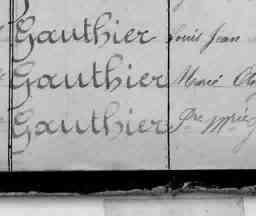 Gauthier Louis Jean
Gauthier Marie
Gauthier Pre Mrie